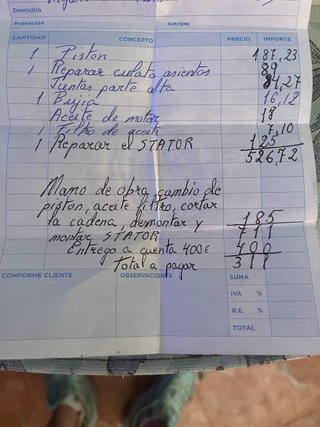 Domicilio
Población CIF/DNI
CANTIDAD CONCEPTO PRECIO IMPORTE
1 Piston 187,23
1 Reparar culata asientos 89
Juntas parte alta 84,27
1 Bujia 16,12
Aceite de motor 18
1 Filtro de aceite 7,10
1 Reparar el STATOR 125
526,72
Mano de obra, cambio de
piston, aceite filtro, cortar
la cadena, desmontar y 185
montar STATOR 711
Entrego a cuenta 400€ 400
Total a pagar 311
CONFORME CLIENTE OBSERVACIONES SUMA
IVA %
R.E. %
TOTAL